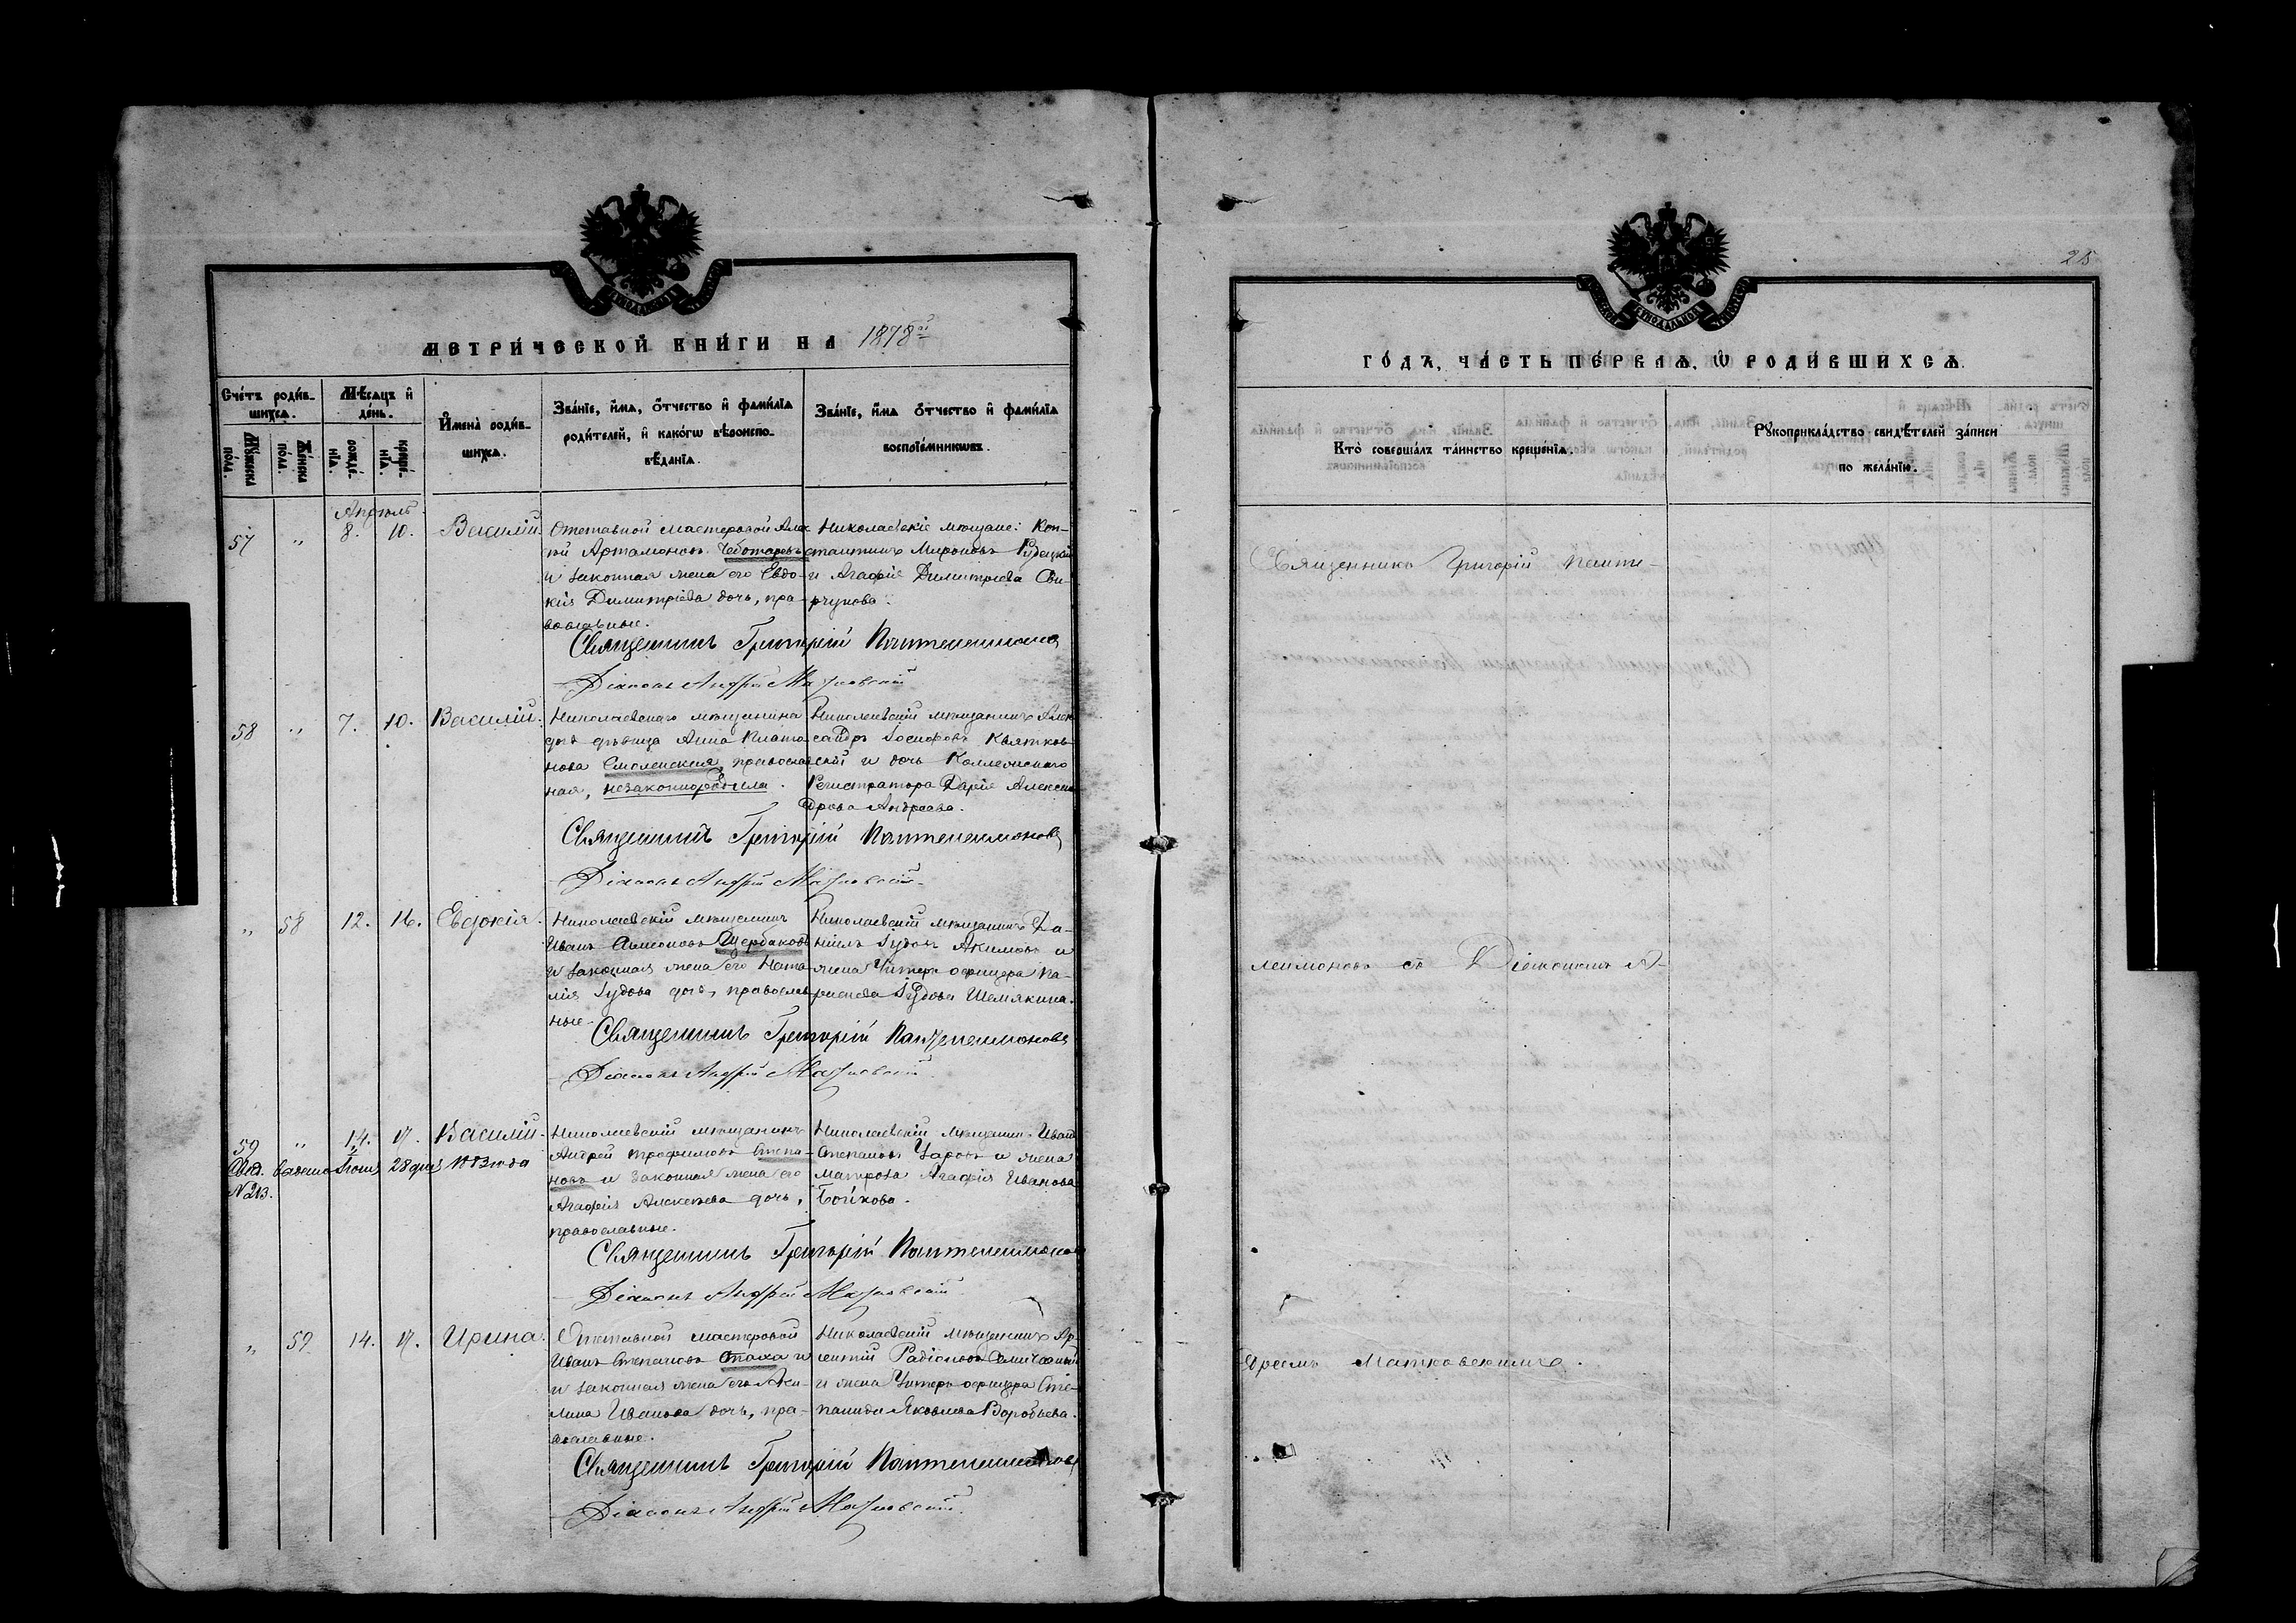 25
МЕТРИЧЕСКОЙ КНИГИ НА 1878й
Счетъ родившихся.
Мѣсяцъ и день.
Имена родившихся.
Званіе, имя, отчество и фамилія родителей, и какогѡ вѣроисповѣданія.
Званіе, имя отчество и фамилія воспріемниковъ.
Мужеска пола.
Женска пола.
рожденія.
крещенія.
Апрѣль
57 " 8. 10. Василій.
Отставной мастеровой Алек
сѣй Артамоновъ Чеботаревъ
и законная жена его Евдо-
кія Димитріева дочь, пра-
вославные.
Николаевскіе мѣщане: Кон-
стантинъ Мироновъ
и Агафія Димитріева
Священникъ Григорій Пантелеимоновъ
Діаконъ Андрей
58 " 7. 10. Василій.
Николаевскаго мѣщанина
дочь дѣвица Анна Плато-
нова Смоленская, православ
ная, незаконнородила.
Николаевскій мѣщанинъ Алек
сандръ Іосифовъ Квятков-
скій и дочь Коллежскаго
Регистратора Дарія Алексан
дрова Андреева.
Священникъ Григорій Пантелеимоновъ
Діаконъ Андрей
" 58 12. 16. Евдокія.
Николаевскій мѣщанинъ
Иванъ Симеоновъ Щербаковъ
и законная жена его Ната-
лія Іудова дочь, православ
ные.
Николаевскій мѣщанинъ Да-
ніилъ Іудовъ Акимовъ и
жена Унтеръ офицера Па-
раскева Іудова Шемякина.
Священникъ Григорій Пантелеимоновъ
Діаконъ Андрей
59 " 14. 17. Василій.
Свид. выдано Іюня 28 дня 1883 года
№ 213.
Николаевскій мѣщанинъ
Андрей Трофимовъ Степа-
новъ и законная жена его
Агафія Алексѣева дочь,
православные.
Николаевскій мѣщанин. Иванъ
Степановъ Уаровъ и жена
матроса Агафія Иванова
Бойкова.
Священникъ Григорій Пантелеимоновъ
Діаконъ Андрей
" 59 14. 17. Ирина.
Отставной мастеровой
Иванъ Степановъ
и законная жена его Аки-
лина Иванова дочь, пра-
вославные.
Николаевскій мѣщанинъ Ар-
сентій Радіоновъ
и жена Унтеръ офицера Сте-
панида Яковлева Воробьева.
Священникъ Григорій Пантелеимоновъ
Діаконъ Андрей
ГОДЪ, ЧАСТЬ ПЕРВАЯ, Ѡ РОДИВШИХСЯ.
Кто совершалъ таинство крещенія.
Рукоприкладство свидѣтелей записи по желанію.
Священникъ Григорій Панте-
леимоновъ съ Діакономъ А-